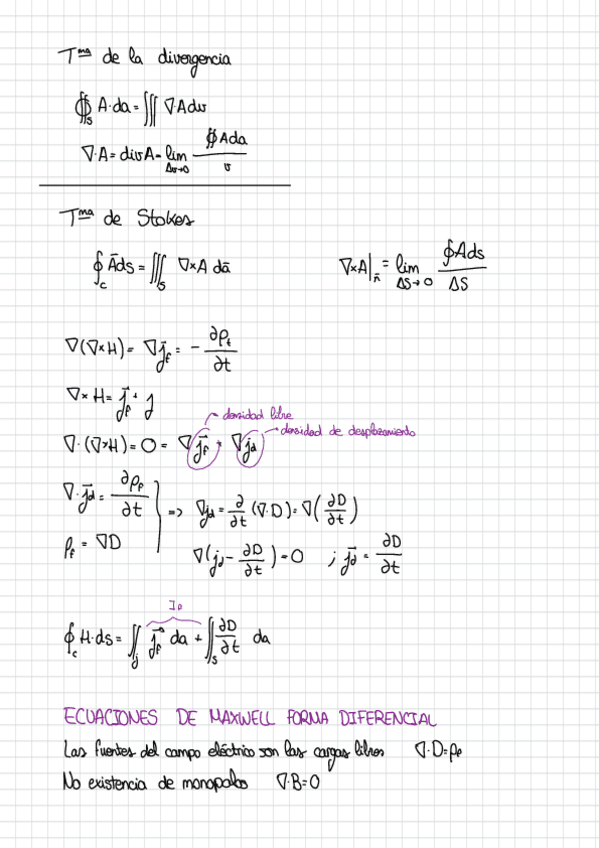 Tma de la divergencia
∯s A·da = ∭ ∇·A dv
∇·A = div A = lim Δv→0 ∯ A da / v
Tma de Stokes
∮c Āds = ∭s ∇×A dā
∇×A|n̄ = lim ΔS→0 ∮Ads / ΔS
∇(∇×H) = ∇j⃗f = - ∂ρf/∂t
∇×H = j⃗f + j
densidad libre
densidad de desplazamiento
∇·(∇×H) = 0 = ∇j⃗f + ∇j⃗d
∇·j⃗d = ∂ρf/∂t
=> ∇jd = ∂/∂t (∇·D) = ∇(∂D/∂t)
ρf = ∇D
∇(jd - ∂D/∂t) = 0 ; j⃗d = ∂D/∂t
∮c H·ds = ∬j j⃗f da + ∬s ∂D/∂t da
ECUACIONES DE MAXWELL FORMA DIFERENCIAL
Las fuentes del campo eléctrico son las cargas libres ∇·D=ρf
No existencia de monopolos ∇·B=0